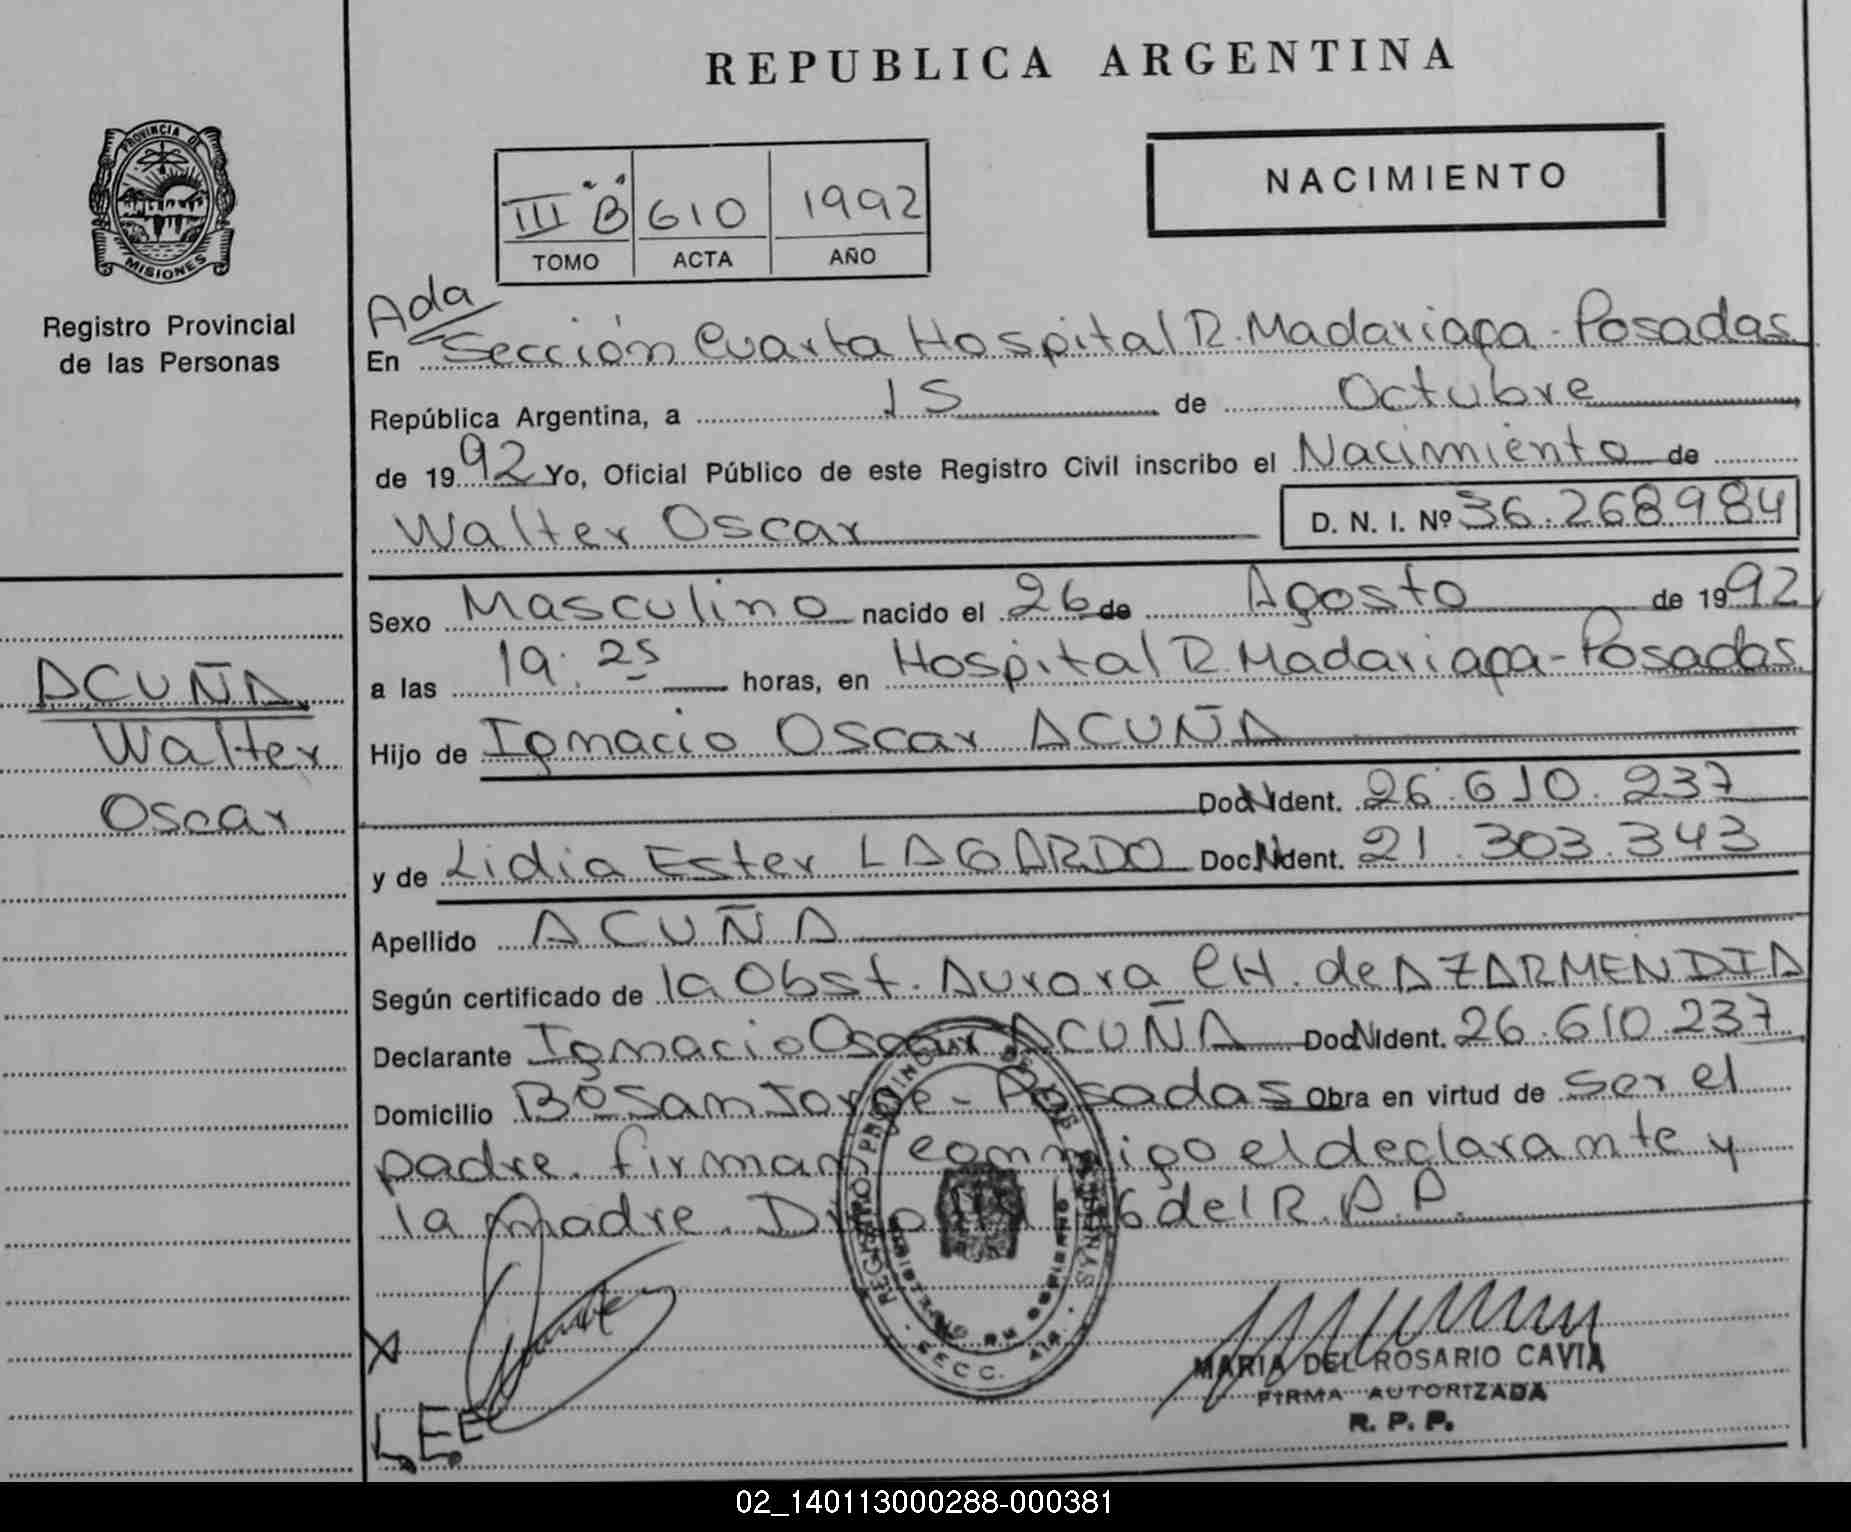 REPUBLICA ARGENTINA
PROVINCIA DE
MISIONES
Registro Provincial
de las Personas
III "B" 610 1992
TOMO ACTA AÑO
NACIMIENTO
Ada
En Sección Cuarta Hospital R. Madariaga - Posadas
República Argentina, a 15 de Octubre
de 1992 Yo, Oficial Público de este Registro Civil inscribo el Nacimiento de
Walter Oscar D. N. I. Nº 36.268984
Sexo Masculino nacido el 26 de Agosto de 1992
a las 19:25 horas, en Hospital R. Madariaga - Posadas
Hijo de Ignacio Oscar ACUÑA
Doc. N Ident. 26.610.237
y de Lidia Ester LAGARDO Doc. N Ident. 21.303.343
Apellido ACUÑA
Según certificado de la Obst. Aurora CH. de AZARMENDIA
Declarante Ignacio Oscar ACUÑA Doc N Ident. 26.610.237
Domicilio Bº San Jorge - Posadas Obra en virtud de ser el
padre. firman conmigo el declarante y
la madre. 6 del R.P.P.
ACUÑA
Walter
Oscar
REGISTRO PROVINCIAL DE LAS PERSONAS
SECC. 4ta.
X
L.E.E
MARIA DEL ROSARIO CAVIA
FIRMA AUTORIZADA
R. P. P.
02_140113000288-000381